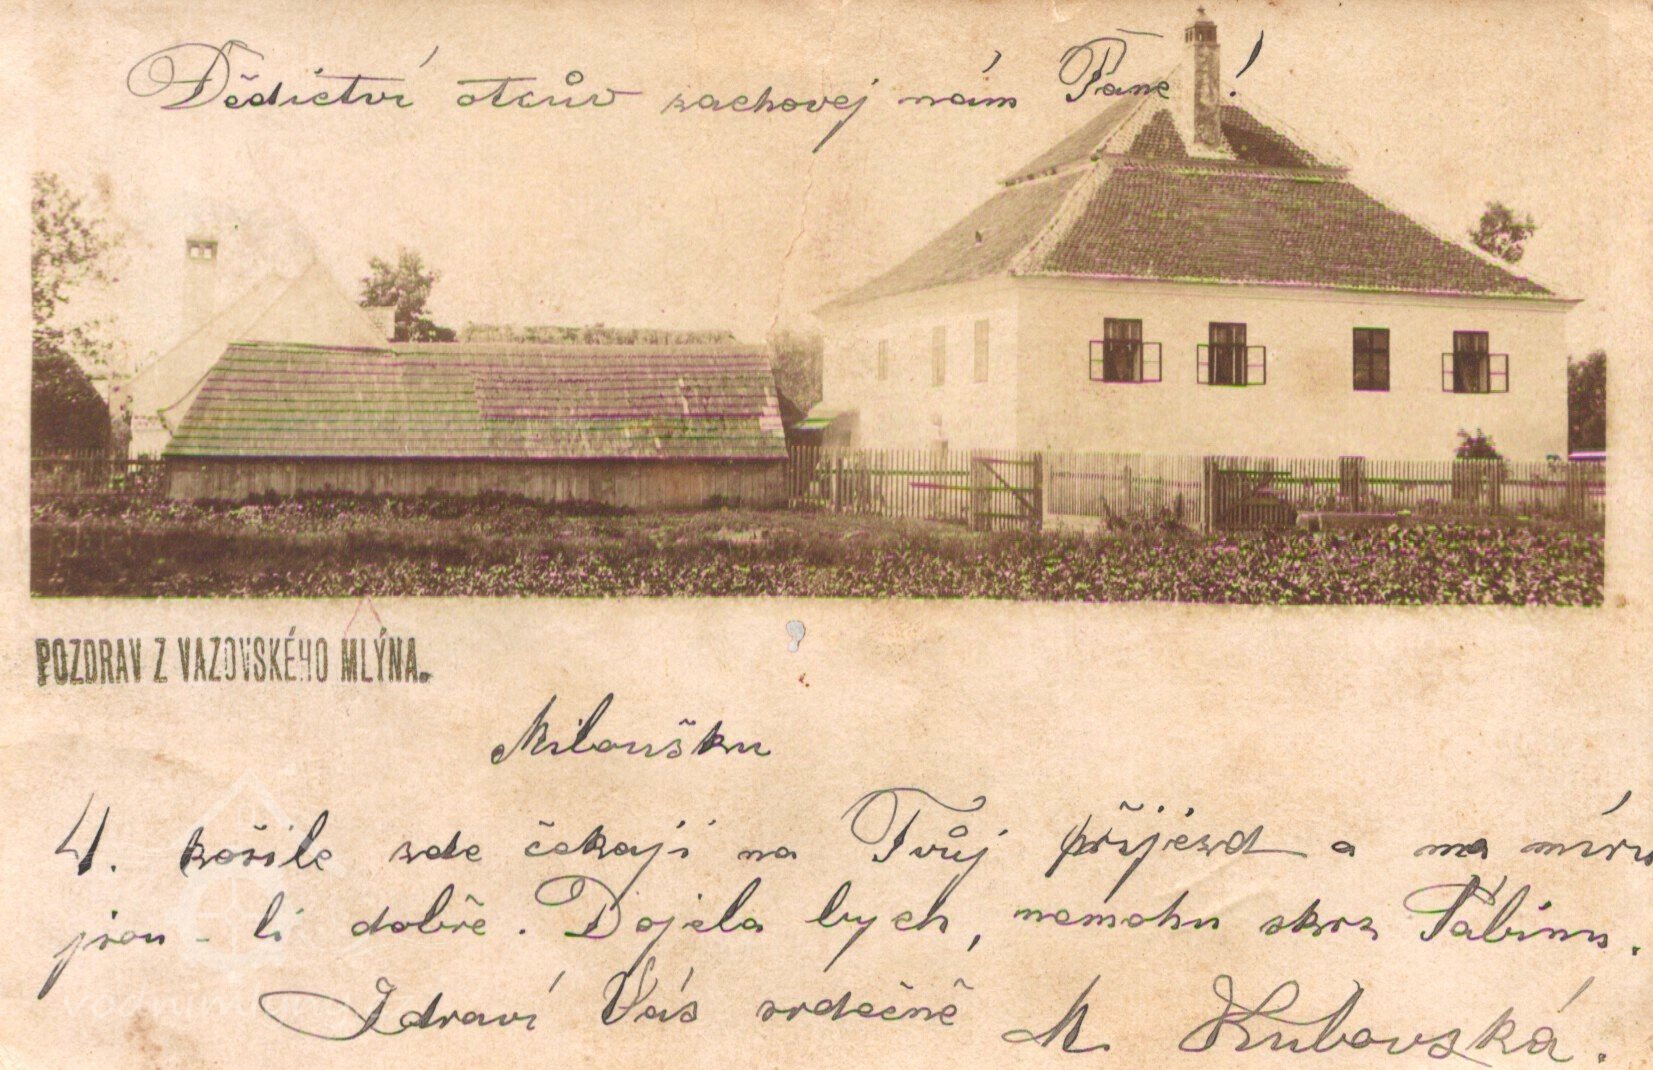 Dědictví otcův zachovej nám Pane!
POZDRAV Z VAZOVSKÉHO MLÝNA.
Miloušku
4. košile zde čekají na Tvůj příjezd a na míru
jsou-li dobře. Dojela bych, nemohu skrz Pabinu.
Zdraví Vás srdečně M. Hubovská.
vodnimlyny